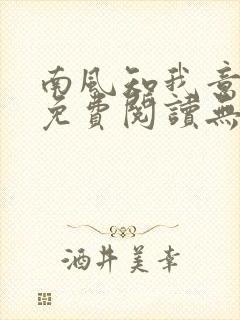 南風知我意
免費閱讀無
酒井美幸